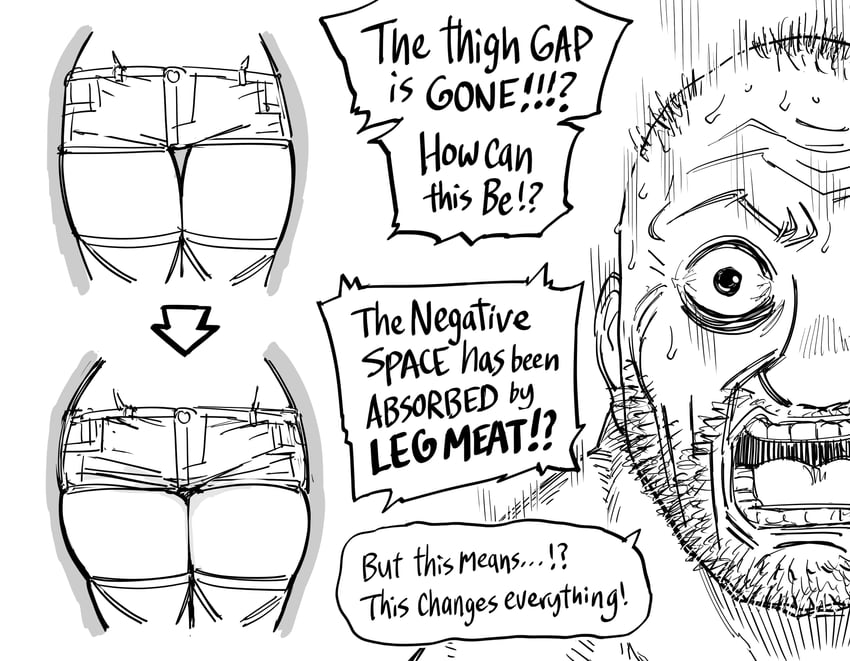 The thigh GAP
is GONE!!!?
How can
this Be!?
The Negative
SPACE has been
ABSORBED by
LEG MEAT!?
But this means...!?
This Changes everything!